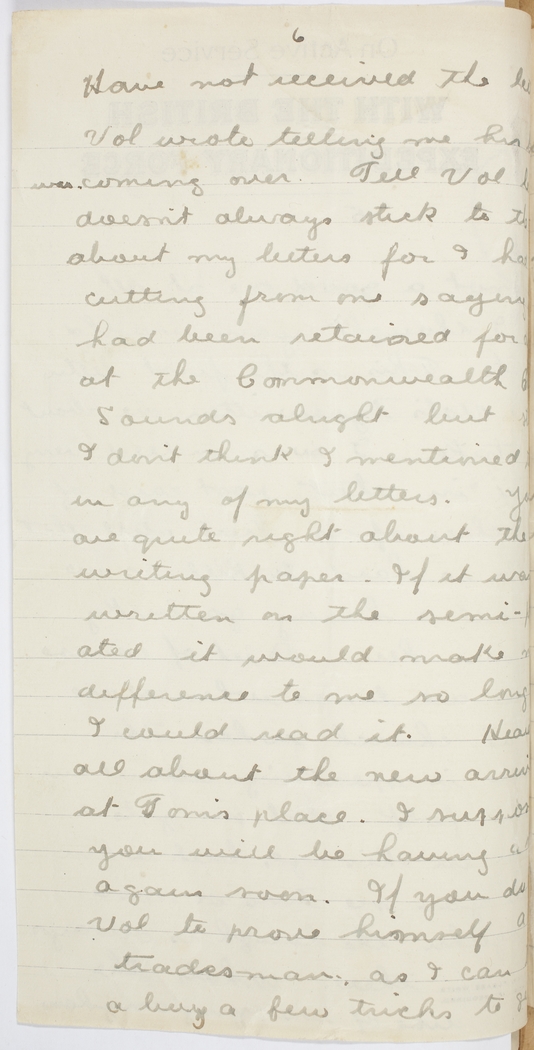 6
Have not received the
Vol wrote telling me his
was. coming over. Tell Vol
doesn't always stick to
about my letters for I
cutting from one saying
had been retained for
at the Commonwealth
Sounds alright but
I don't think I mentioned
in any of my letters.
are quite right about the
writing paper. If it was
written on the semi-
ated it would make
difference to me so long
I could read it. Hear
all about the new
at Tom's place. I
you will be having a
again soon. If you do
Vol to prove himself a
tradesman, as I can
a buy a few tricks to